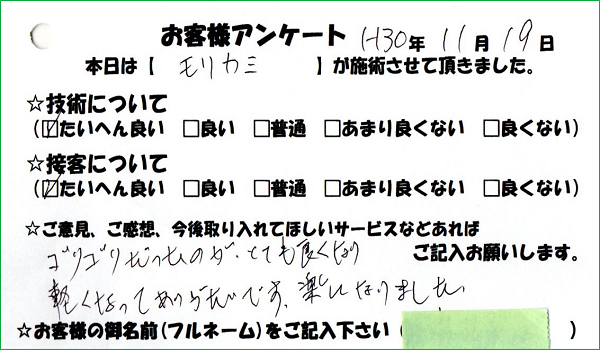 お客様アンケート H30年 11月 19日
本日は【 モリカミ 】が施術させて頂きました。
☆技術について
(☑たいへん良い □良い □普通 □あまり良くない □良くない)
☆接客について
(☑たいへん良い □良い □普通 □あまり良くない □良くない)
☆ご意見、ご感想、今後取り入れてほしいサービスなどあれば
ご記入お願いします。
ゴリゴリだったのが、とても良くなり
軽くなってありがたいです。楽になりました
☆お客様の御名前(フルネーム)をご記入下さい( )